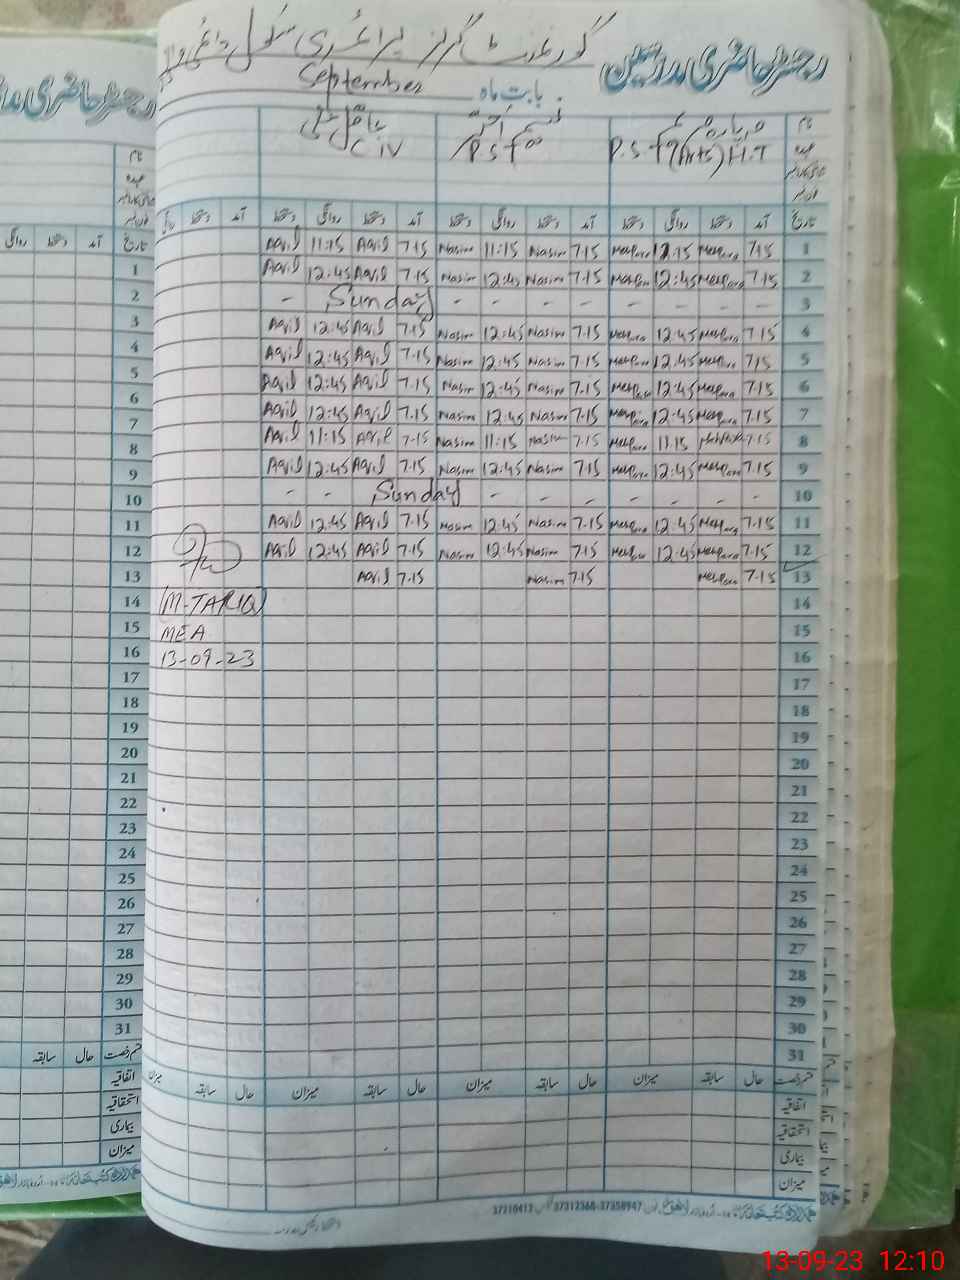 رجسٹر حاضری مدرسین
گورنمنٹ گرلز پرائمری سکول
بابت ماہ September
نام
عہدہ
مہ پارہ
P.S.T (Arts) H.T
نسیم اختر
P.S.T
عاقل علی
C IV
تاریخ آمد دستخط روانگی دستخط آمد دستخط روانگی دستخط آمد دستخط روانگی دستخط آمد دستخط روانگی
1 7.15 Mehpara 12.15 Mehpara 7.15 Nasim 11:15 Nasim 7.15 Aqil 11:15 Aqil
2 7.15 Mehpara 12:45 Mehpara 7.15 Nasim 12:45 Nasim 7.15 Aqil 12:45 Aqil
3 - - - - - - - - Sunday -
4 7.15 Mehpara 12:45 Mehpara 7.15 Nasim 12:45 Nasim 7.15 Aqil 12:45 Aqil
5 7.15 Mehpara 12.45 Mehpara 7.15 Nasim 12:45 Nasim 7.15 Aqil 12:45 Aqil
6 7.15 Mehpara 12:45 Mehpara 7.15 Nasim 12:45 Nasim 7.15 Aqil 12:45 Aqil
7 7.15 Mehpara 12:45 Mehpara 7.15 Nasim 12:45 Nasim 7.15 Aqil 12:45 Aqil
8 7.15 Mehpara 11.15 Mehpara 7.15 Nasim 11:15 Nasim 7.15 Aqil 11:15 Aqil
9 7.15 Mehpara 12:45 Mehpara 7.15 Nasim 12:45 Nasim 7.15 Aqil 12:45 Aqil
10 - - - - - - - Sunday - -
11 7.15 Mehpara 12:45 Mehpara 7.15 Nasim 12:45 Nasim 7.15 Aqil 12:45 Aqil
12 7.15 Mehpara 12:45 Mehpara 7.15 Nasim 12:45 Nasim 7.15 Aqil 12:45 Aqil
13 7.15 Mehpara 7.15 Nasim 7.15 Aqil
14 (M-TARIQ)
15 MEA
16 13-09-23
17
18
19
20
21
22
23
24
25
26
27
28
29
30
31
قسم رخصت حال سابقہ میزان حال سابقہ میزان حال سابقہ میزان حال سابقہ میزان
اتفاقیہ
استحقاقیہ
بیماری
میزان
37210412 37312366-37358947
رجسٹر حاضری
نام
عہدہ
تاریخ آمد دستخط روانگی
1
2
3
4
5
6
7
8
9
10
11
12
13
14
15
16
17
18
19
20
21
22
23
24
25
26
27
28
29
30
31
قسم رخصت حال سابقہ
اتفاقیہ
استحقاقیہ
بیماری
میزان
13-09-23 12:10